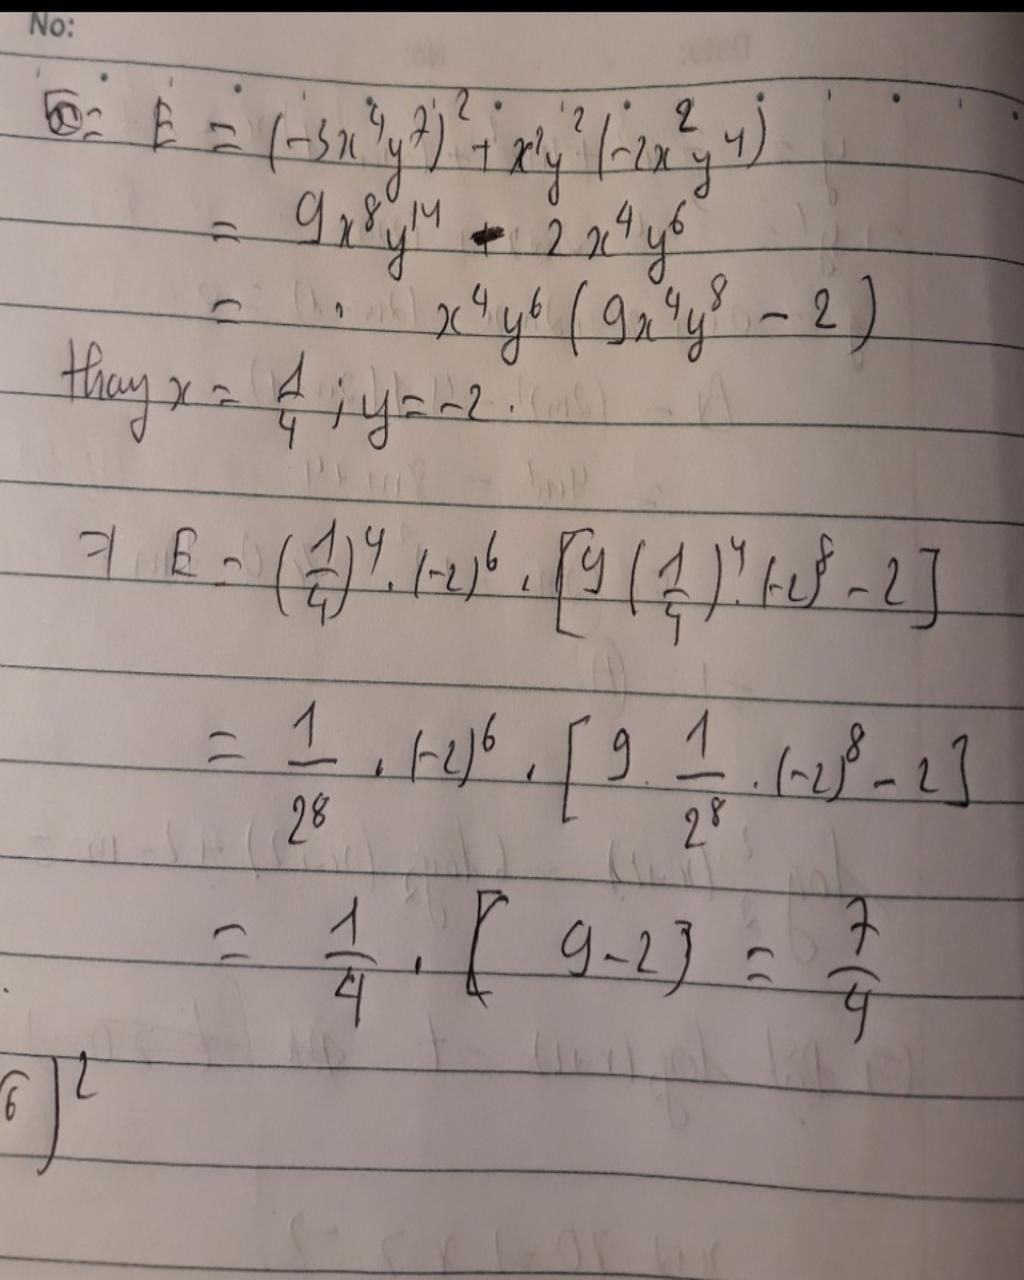 No:
E = (-3x⁴y⁷)² + x²y²(-2x²y⁴)
= 9x⁸y¹⁴ - 2x⁴y⁶
= x⁴y⁶(9x⁴y⁸ - 2)
thay x = 1/4 ; y = -2.
⇒ E = (1/4)⁴ . (-2)⁶ . [9(1/4)⁴ . (-2)⁸ - 2]
= 1/2⁸ . (-2)⁶ . [9 . 1/2⁸ . (-2)⁸ - 2]
= 1/4 . [9-2] = 7/4
6)²